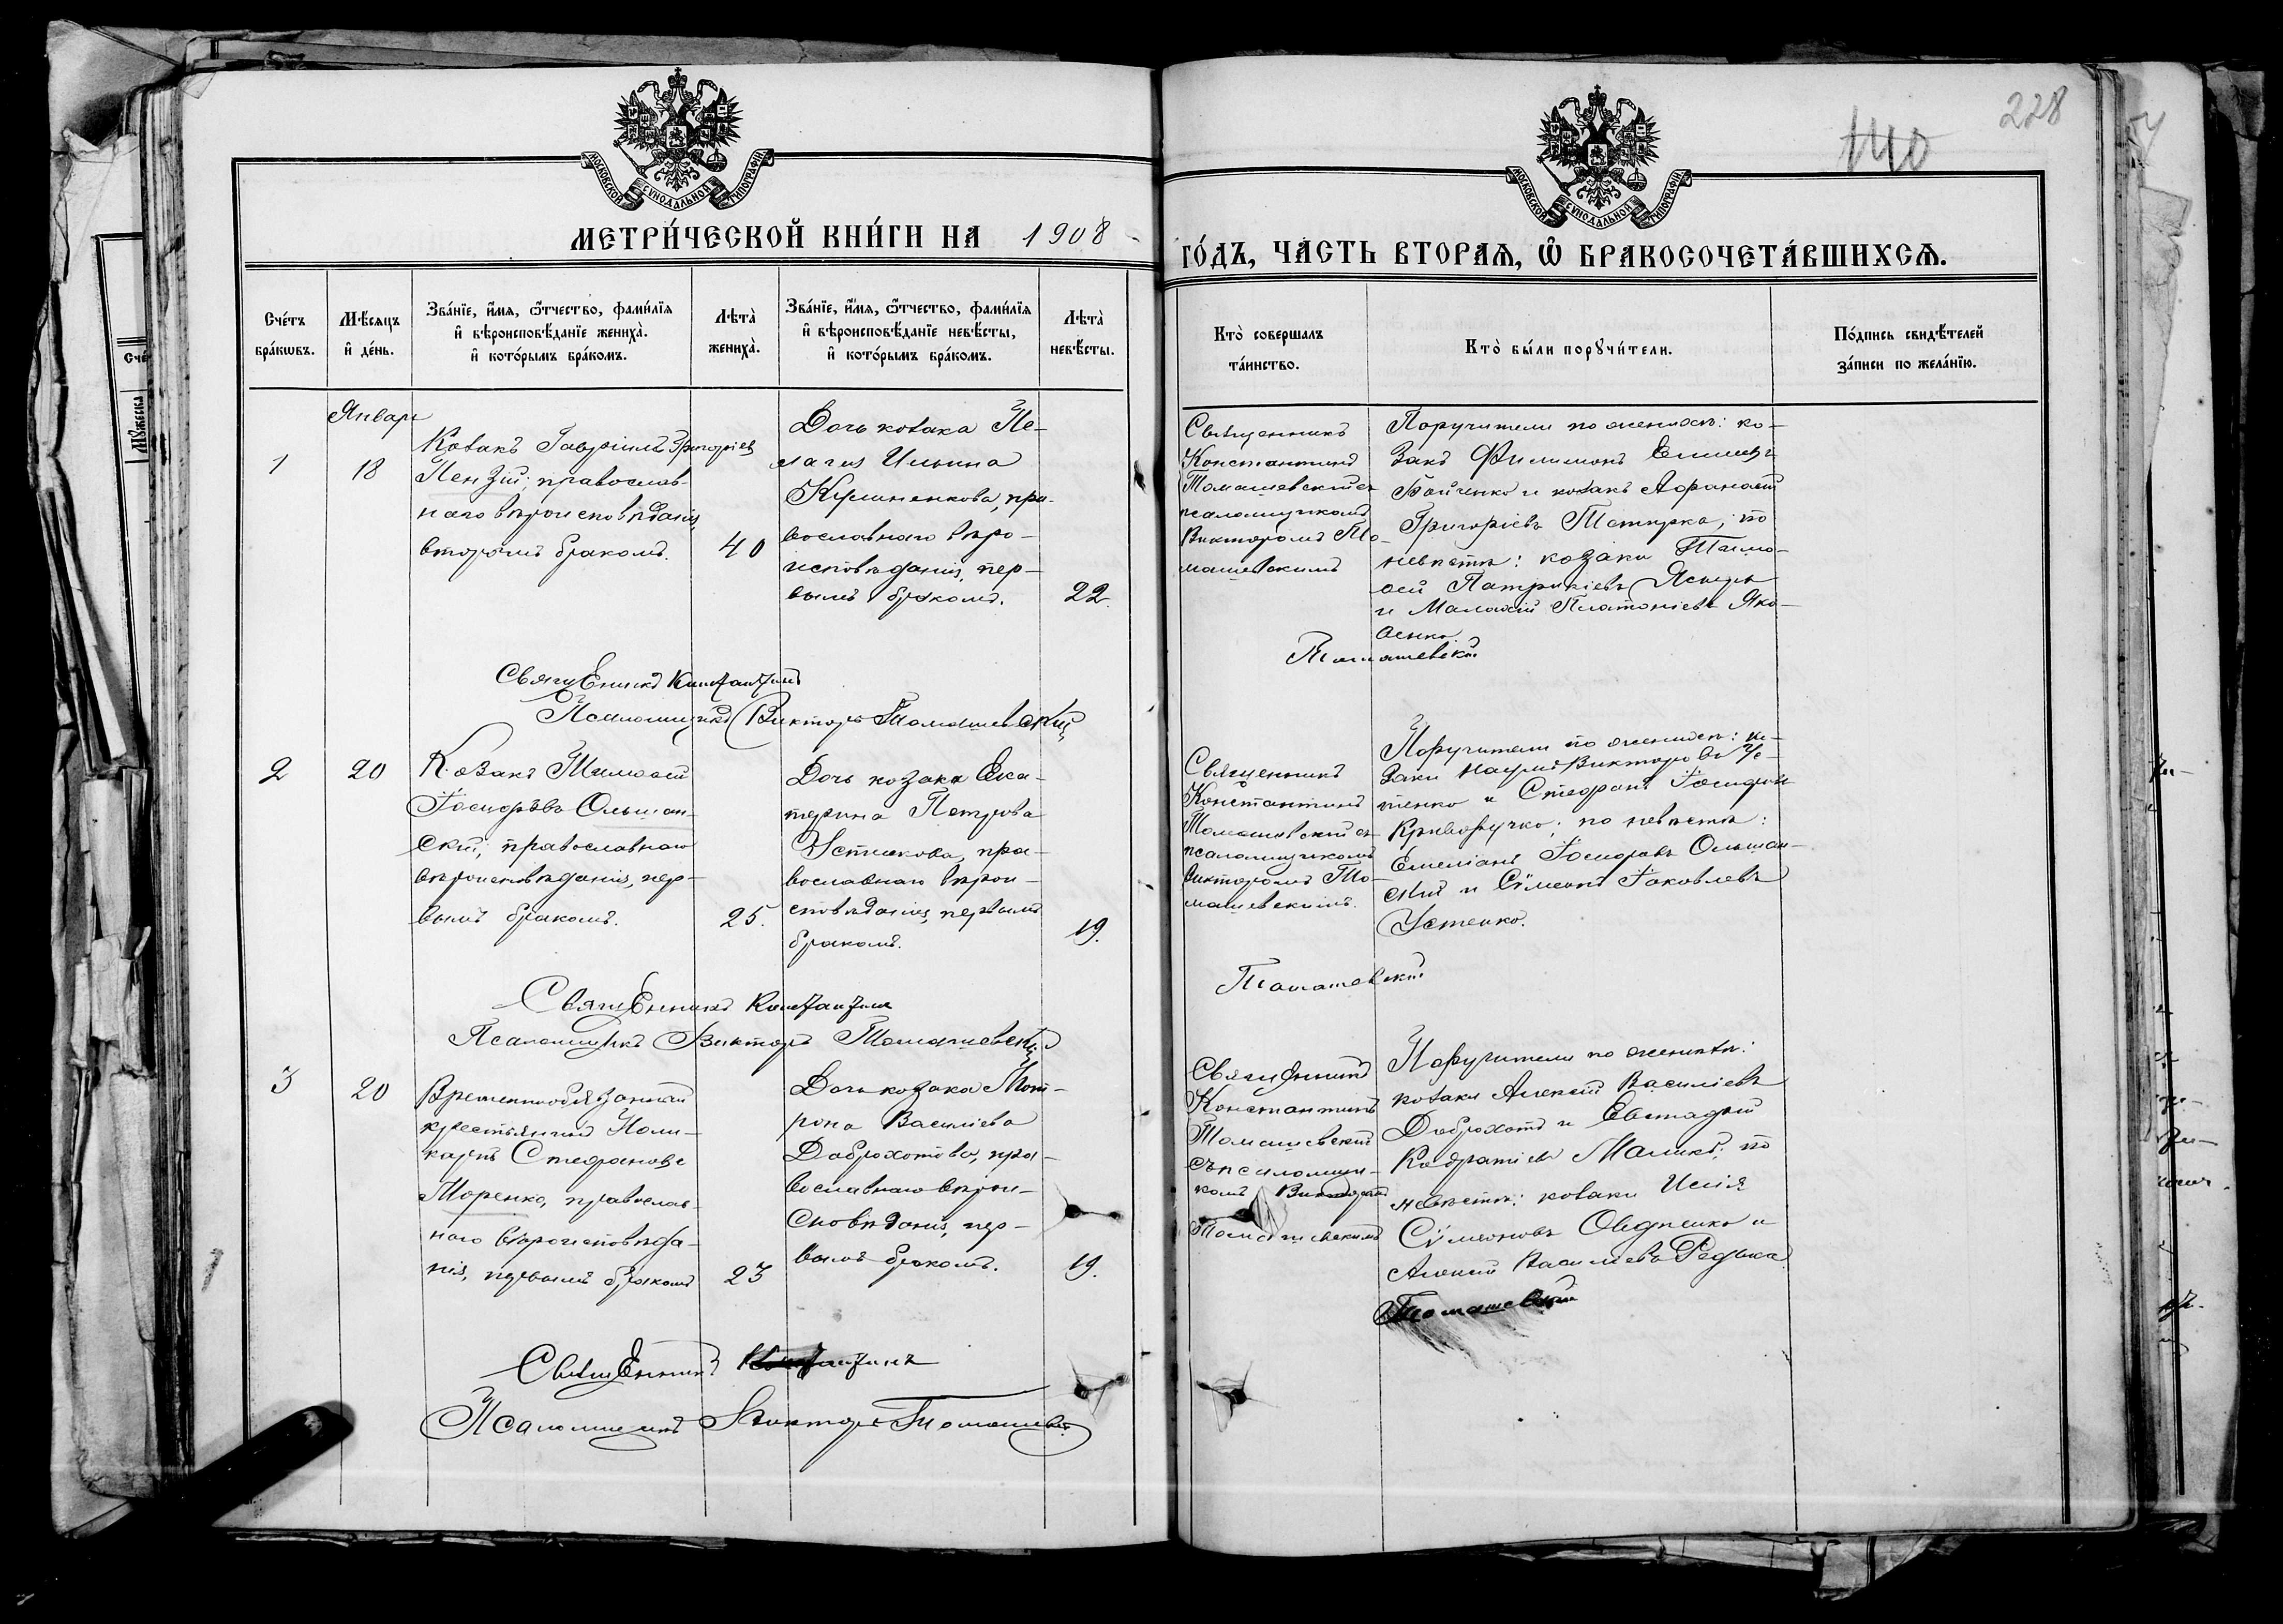 228
140
МОСКОВСКОЙ СѴНОДАЛЬНОЙ ТИПОГРАФІИ
МОСКОВСКОЙ СѴНОДАЛЬНОЙ ТИПОГРАФІИ
МЕТРИ́ЧЕСКОЙ КНИ́ГИ НА 1908
ГО́ДЪ, ЧА́СТЬ ВТОРАЯ, Ѿ БРАКОСОЧЕТА́ВШИХСЯ.
Сче́тъ
бра́кѡвъ.
Мѣ́сяцъ
и҆ де́нь.
Зва́нїе, и҆́мя, ѻ҆́тчество, фами́лїя
и҆ вѣроисповѣ́данїе жениха̀.
и҆ кото́рымъ бра́комъ.
Лѣта̀
жениха̀.
Зва́нїе, и҆́мя, ѻ҆́тчество, фами́лїя
и҆ вѣроисповѣ́данїе невѣ́сты,
и҆ кото́рымъ бра́комъ.
Лѣта̀
невѣ́сты.
Кто̀ совершалъ
та́инство.
Кто̀ бы́ли порꙋчи́тели.
По́дпись свидѣ́телей
за́писи по жела́нїю.
1
Январ
18
Козакъ Гавріилъ Григоріев
Пензій, православ-
наго вѣроисповѣданія,
вторымъ бракомъ.
40
Дочь козака Пе-
лагія Ильина
православнаго вѣро-
исповѣданія, пер-
вымъ бракомъ.
22.
Священникъ
Константинъ
Томашевскій съ
псаломщикомъ
Викторомъ То-
машевскимъ
Поручители по женихѣ: ко-
закъ Филимонъ
Бойченко и козакъ Афанасій
Григоріевъ; по
невѣстѣ: козаки Тимо-
ѳей Патрикіевъ
и Малахій Платоніевъ Яко-
венко.
Томашевскій
Священникъ Константинъ
Псаломщикъ Викторъ Томашевскій
2
20
Козакъ Тимоѳей
Іосифовъ Ольшан-
скій, православнаго
вѣроисповѣданія, пер-
вымъ бракомъ.
25.
Дочь козака Ека-
терина Петрова
православнаго вѣрои-
сповѣданія, первымъ
бракомъ.
19.
Священникъ
Константинъ
Томашевскій съ
псаломщикомъ
Викторомъ То-
машевскимъ.
Поручители по женихѣ: ко-
заки Наумъ Викторовъ Ус-
тенко и Стефанъ Іосифовъ
Криворучко; по невѣстѣ:
Емеліанъ Іосифовъ Ольшан-
скій и Сѵмеонъ Іаковлевъ
Устенко.
Томашевскій
Священникъ Константинъ
Псаломщикъ Викторъ Томашевскій
3
20
Временнообязанный
крестьянинъ Поли-
карпъ Стефановъ
Моренко, православ-
наго вѣроисповѣда-
нія, первымъ бракомъ
23
Дочь козака Мот-
рона Василіева
Доброхотова, пра-
вославнаго вѣрои-
сповѣданія, пер-
вымъ бракомъ.
19.
Священникъ
Константинъ
Томашевскій
съ псаломщи-
комъ Викторомъ
Томашевскимъ
Поручители по женихѣ:
козаки Алексій Василіевъ
Доброхотъ и Евстафій
Кодратіевъ; по
невѣстѣ: козаки Илія
Сѵмеоновъ Овдіенко и
Алексій Василіевъ Редька
Томашевскій
Священникъ Константинъ
Псаломщикъ Викторъ Томашевскій